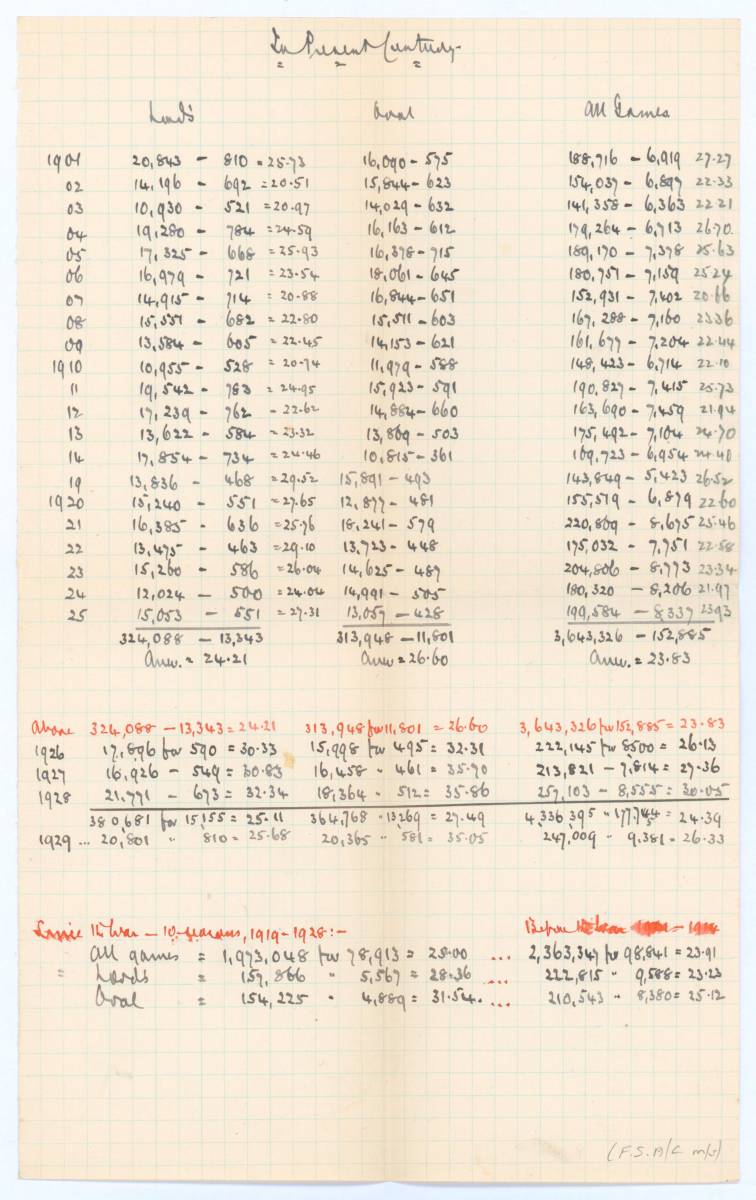 In Present Century.
Lord's Oval All Games
1901 20,843 - 810 = 25.73 16,090 - 575 188,716 - 6,919 27.27
02 14,196 - 692 = 20.51 15,844 - 623 154,037 - 6,897 22.33
03 10,930 - 521 = 20.97 14,029 - 632 141,358 - 6,363 22.21
04 19,280 - 784 = 24.59 16,163 - 612 179,264 - 6,713 26.70
05 17,325 - 668 = 25.93 16,378 - 715 189,170 - 7,378 25.63
06 16,979 - 721 = 23.54 18,061 - 645 180,757 - 7,159 25.24
07 14,915 - 714 = 20.88 16,844 - 651 152,931 - 7,402 20.66
08 15,551 - 682 = 22.80 15,511 - 603 167,288 - 7,160 23.36
09 13,584 - 605 = 22.45 14,153 - 621 161,677 - 7,204 22.44
1910 10,955 - 528 = 20.74 11,979 - 588 148,423 - 6,714 22.10
11 19,542 - 783 = 24.95 15,923 - 591 190,827 - 7,415 25.73
12 17,239 - 762 - 22.62 14,884 - 660 163,690 - 7,459 21.94
13 13,622 - 584 = 23.32 13,869 - 503 175,492 - 7,104 24.70
14 17,854 - 734 = 24.46 10,815 - 361 169,723 - 6,954 24.40
19 13,836 - 468 = 29.52 15,891 - 493 143,849 - 5,423 26.52
1920 15,240 - 551 = 27.65 12,877 - 481 155,519 - 6,879 22.60
21 16,385 - 636 = 25.76 18,241 - 579 220,869 - 8,675 25.46
22 13,475 - 463 = 29.10 13,723 - 448 175,032 - 7,751 22.58
23 15,260 - 586 = 26.04 14,625 - 487 204,806 - 8,773 23.34
24 12,024 - 500 = 24.04 14,991 - 505 180,320 - 8,206 21.97
25 15,053 - 551 = 27.31 13,057 - 428 199,584 - 8,337 23.93
324,088 - 13,343 313,948 - 11,801 3,643,326 - 152,885
Aver. = 24.21 Aver = 26.60 Aver. = 23.83
Above 324,088 - 13,343 = 24.21 313,948 for 11,801 = 26.60 3,643,326 for 152,885 = 23.83
1926 17,896 for 590 = 30.33 15,998 for 495 = 32.31 222,145 for 8500 = 26.13
1927 16,926 - 549 = 30.83 16,458 " 461 = 35.70 213,821 - 7,814 = 27.36
1928 21,771 - 673 = 32.34 18,364 " 512 = 35.86 257,103 - 8,555 = 30.05
380,681 for 15,155 = 25.11 364,768 " 13,269 = 27.49 4,336,395 " 177,744 = 24.39
1929 ... 20,801 " 810 = 25.68 20,365 " 581 = 35.05 247,009 " 9,381 = 26.33
Since the War - 10 seasons, 1919-1928:- Before the War
All games = 1,973,048 for 78,913 = 25.00 ... 2,363,347 for 98,841 = 23.91
" Lord's = 157,866 " 5,567 = 28.36 ... 222,815 " 9,588 = 23.23
Oval = 154,225 " 4,889 = 31.54. ... 210,543 " 8,380 = 25.12
(F.S. A/C m/s)